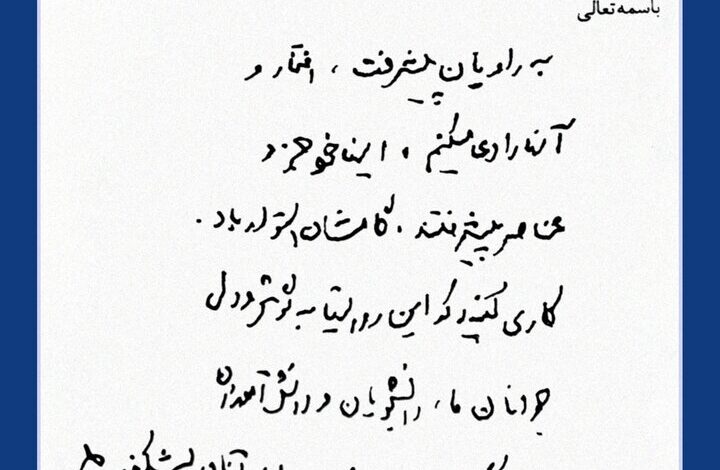 باسمه تعالی
به راویان پیشرفت ، افتخار و
آنها را دعا میکنم ، اینها خود جزء
عناصر پیشرفتند . گامشان استوار باد .
کاری کنید که این روایتها به گوش و دل
جوانان ما، دانشجویان و دانش‌آموزان